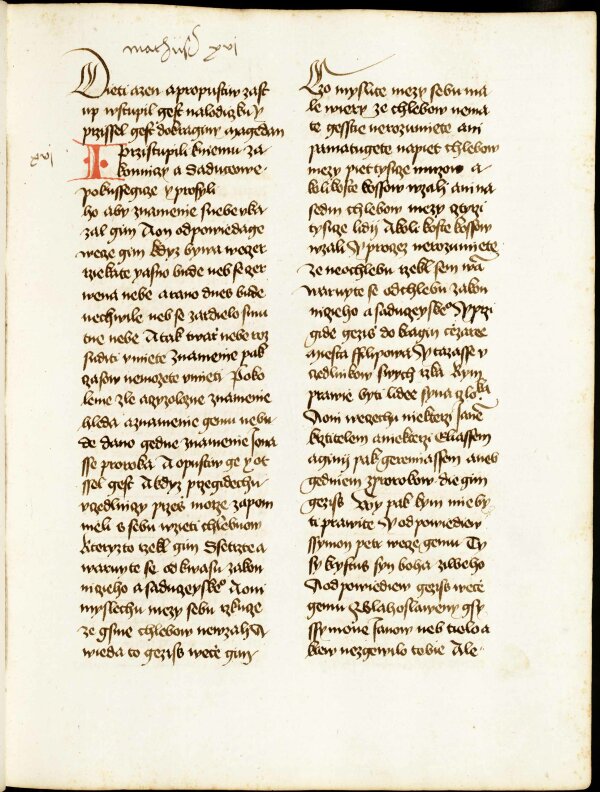 matheus xvi
Dieti azen a propustiw zast
up wstupil gest na lodiczku y
przissel gest do kraginy magedan
xvi
I przistupili k niemu za
konnizy a saduceowe
pokussegize y prosyli
ho aby znamenie s nebe vka
zal gim A on odpowiedage
wecze gim kdyz bywa weczer
rziekate yasno bude neb se czer
wena nebe a rano dnes bude
nechwile neb se zardielo smu
tne nebe A tak twarz nebe roz
suditi vmiete znamenie pak
czasow nemozete vmieti Poko
lenie zle a czyzolozne znamenie
hleda a znamenie gemu nebu
de dano gedne znamenie Jona
sse proroka A opustiw ge y ot
ssel gest A kdyz przegidechu
vczedlniczy przes morze zapom
nieli s sebu wzieti chlebuow
Kteryzto rzekl gim Dsetrzte a
warugte se od kwasu zakon
niczieho a saduczeyskeho A oni
myslechu mezy sebu rzkucze
ze gsme chlebow newzali A
wieda to gezissi wecze gim
Czo myslite mezy sebu ma
le wiery ze chlebow nema
te gesstie nerozumiete ani
pamatugete na piet chlebow
mezy piet tysicze muzow a
koliko kossow wzali ani na
sedm chlebow mezy cztyrzi
tysicze lidij A koliko kossow
wzali Y proczez nerozumiete
ze ne o chlebu rzekl sem wam
warugte se od chlebu zakon
niczieho a saduczeyskeho Y przi
gide geziss do kragin cezaree
miesta ffilipowa Y tazasse v
czedlnikow swych rzka Kym
prawie byti lidee syna czlowieka
A oni wecechu niekterzi Janem
krztitelem a niekterzi Eliassem
a gini pak geremiassem aneb
gedniem z prorokow die gim
geziss Wy pak kym mie by
ti prawite Y odpowiediew
ssymon petr wecze gemu Ty
sy krystus syn boha ziweho
A odpowiediew geziss wecze
gemu Blahoslaweny gsy
ssymone Janow neb tielo a
krew nezgewilo tobie Ale